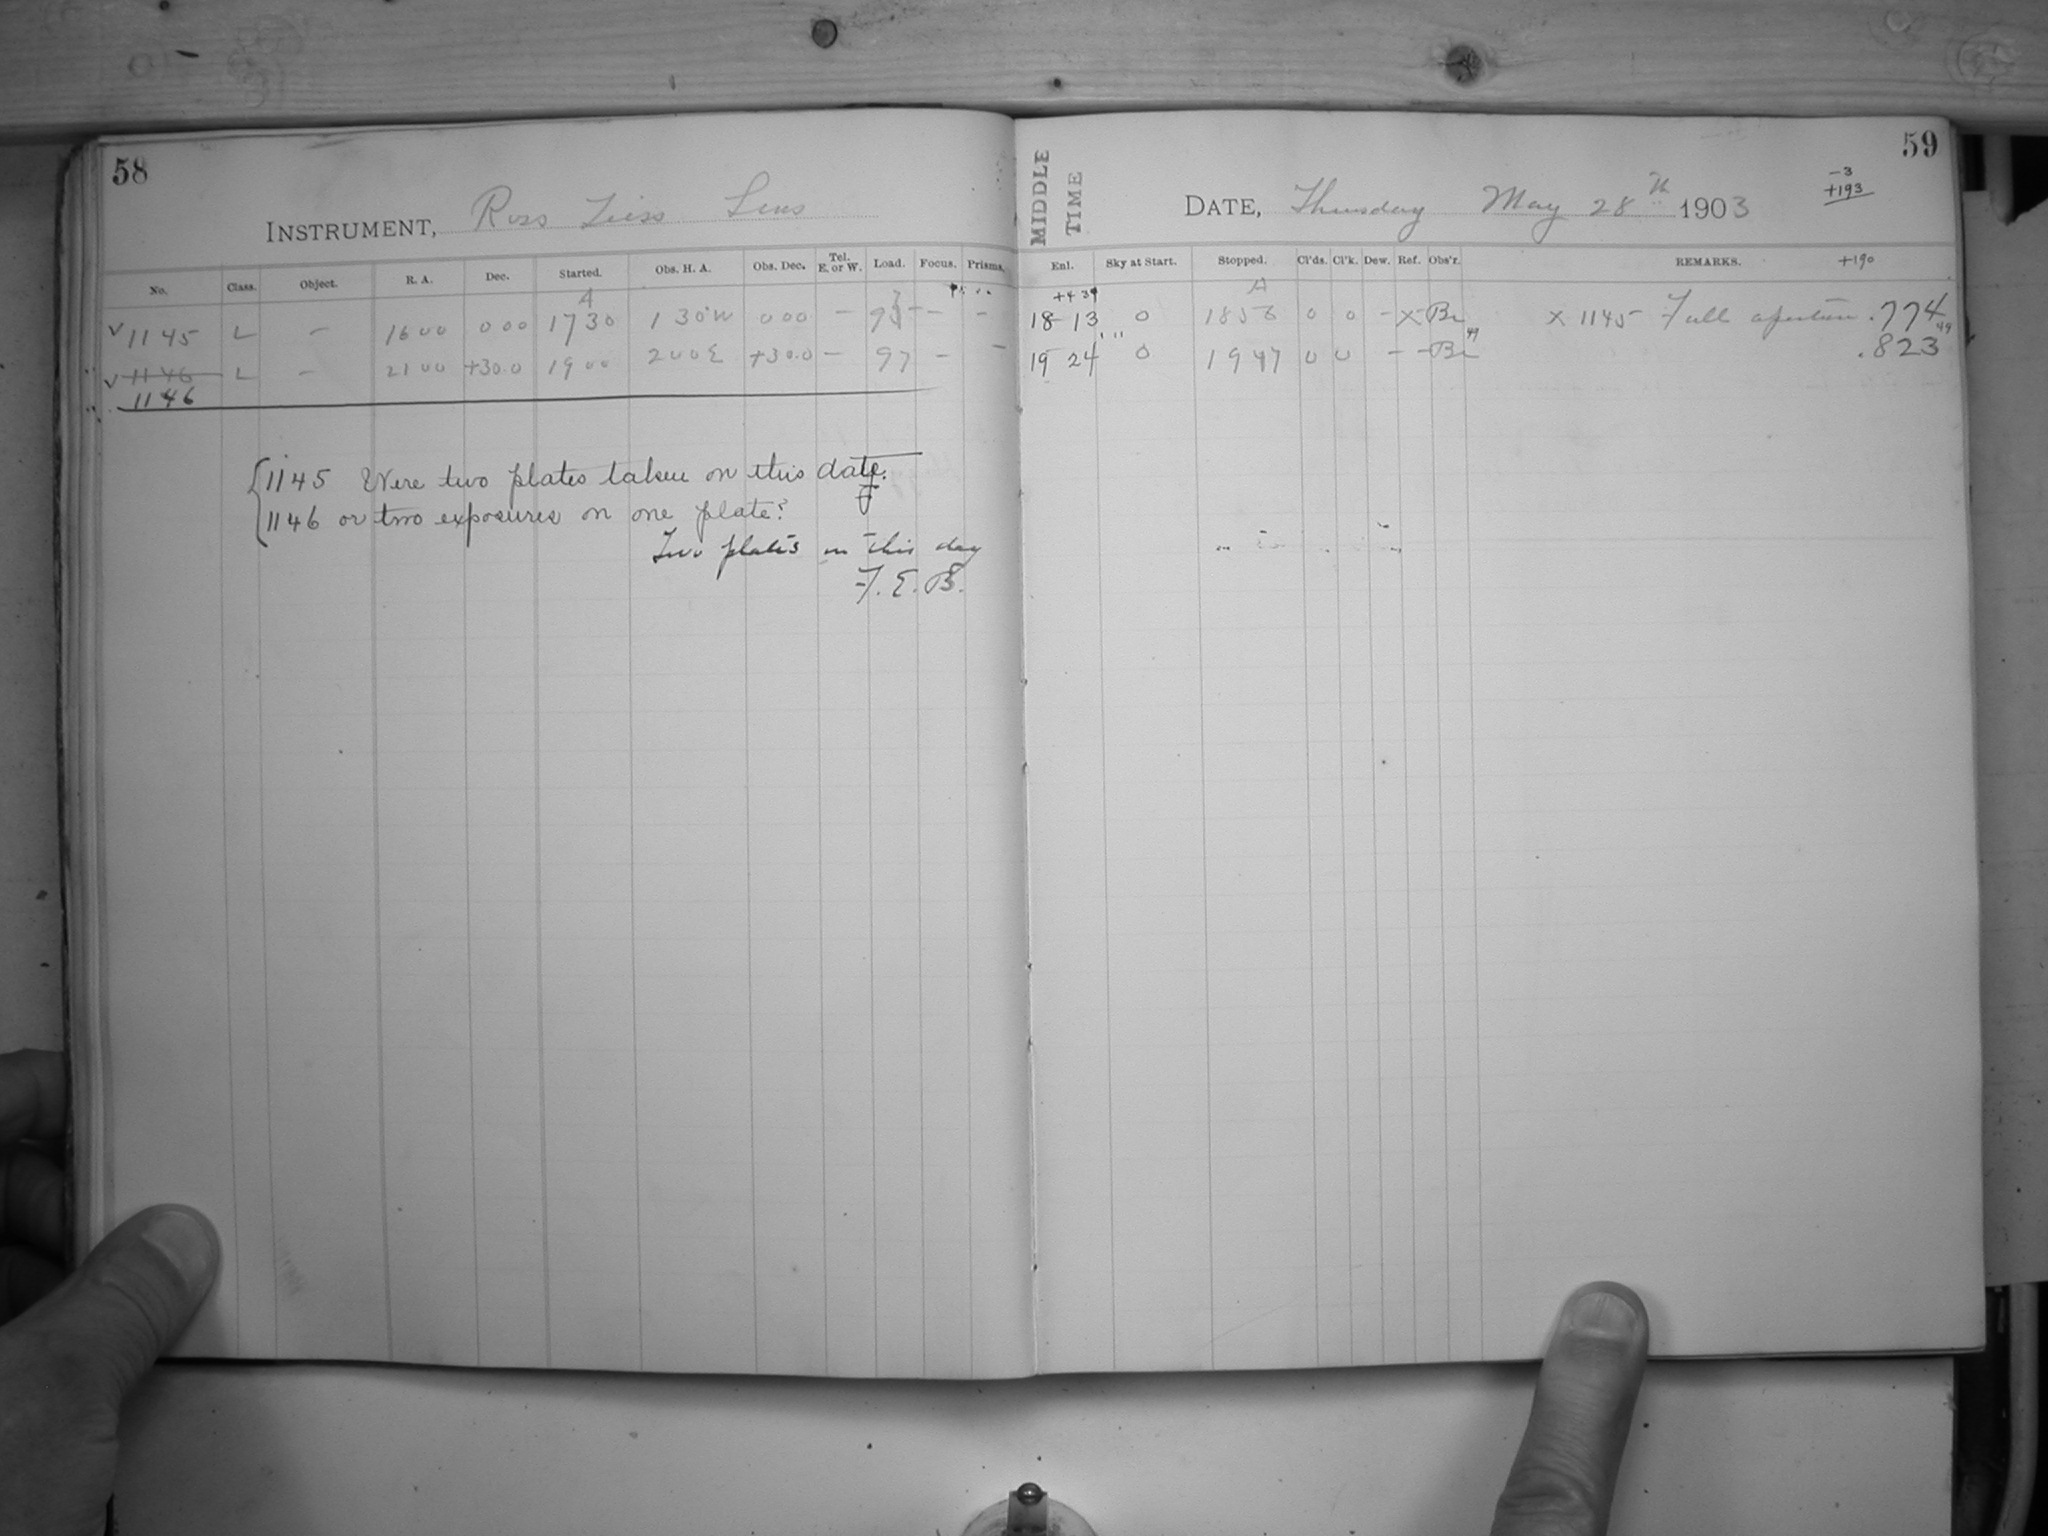 58
INSTRUMENT, Ross Zeiss Lens
No. Class. Object. R. A. Dec. Started. Obs. H. A. Obs. Dec. Tel. E. or W. Load. Focus. Prisms.
A
√ 1145 L – 1600 000 1730 1 30 W 000 – 97 – –
√ 1146 L – 2100 +30.0 1900 200 E +30.0 – 97 – –
1146
{1145 Were two plates taken on this date.
1146 or two exposures on one plate?
Two plates on this day
F. E. B.
59
MIDDLE TIME
DATE, Thursday May 28th 1903
-3
+193
Enl. Sky at Start. Stopped. Cl'ds. Cl'k. Dew. Ref. Obs'r. REMARKS. +190
+4 39 A
18 13 0 1856 0 0 – X Br X 1145 Full aperture .774 49
19 24 0 1947 0 0 – – Br 49 .823